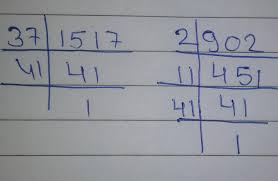 37 1517
41 41
1
2 902
11 451
41 41
1